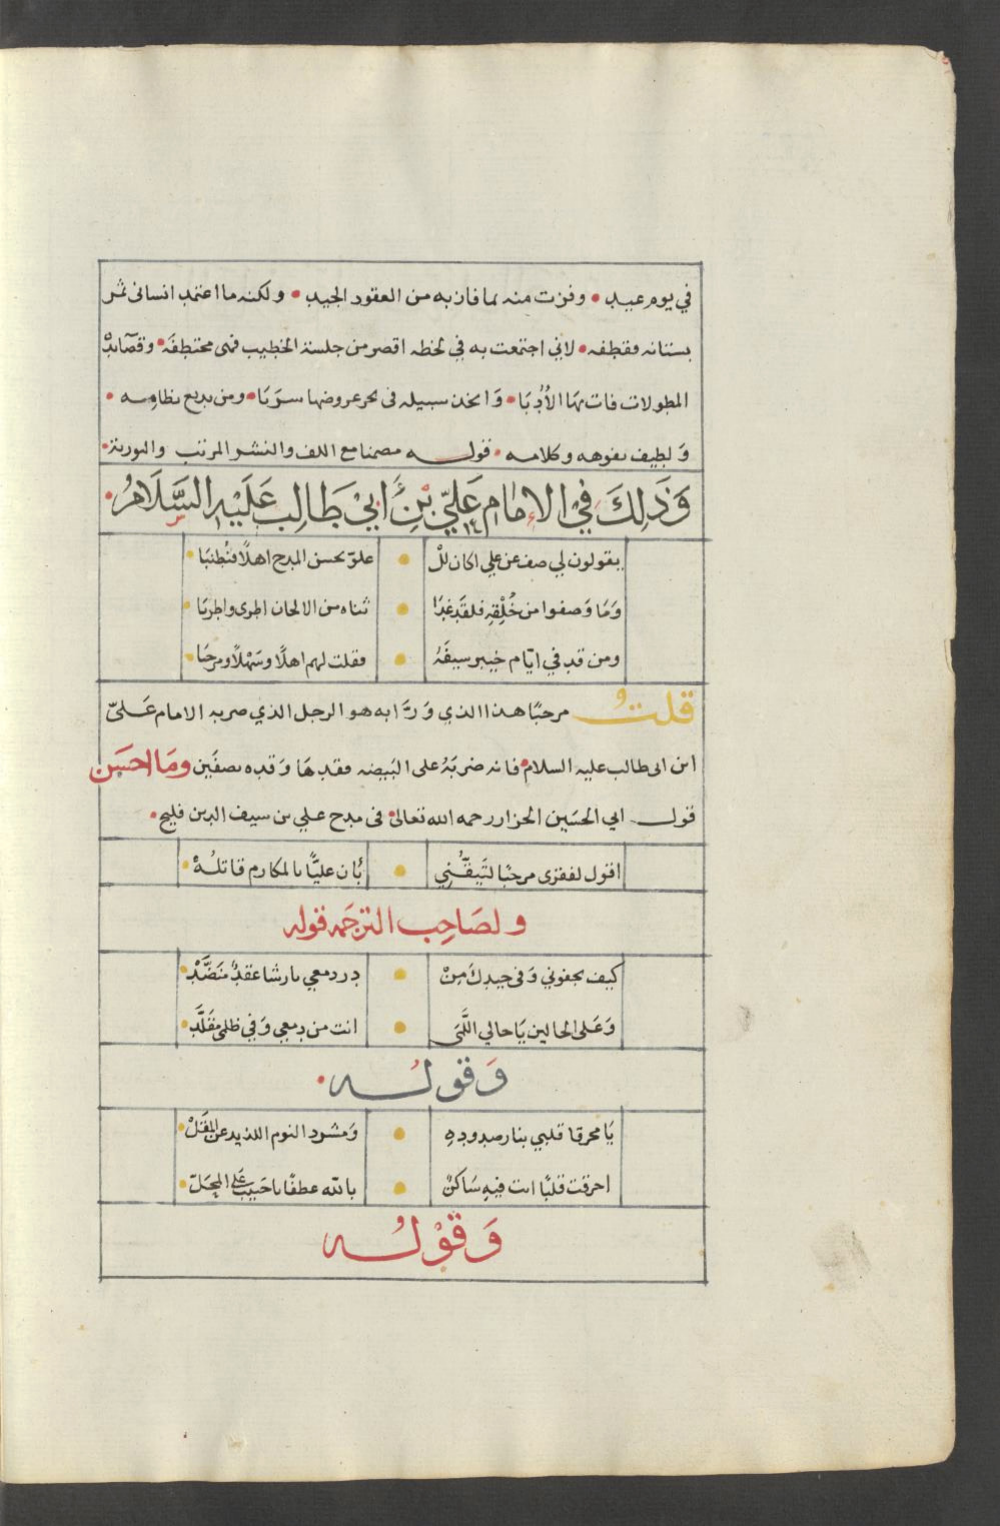 في يوم عيد • وفزت منه بما فاز به من العقود الجيد • ولكنه ما اعتمد انسانى ثمر
بستانه فقطفه • لاني اجتمعت به في لحظه اقصر من جلسة الخطيب فهى مختطفة • وقصائده
المطولات فات بها الأدبا • واتخذ سبيله فى بحر عروضها سربا • ومن بديع نظامه •
ولطيف تفوهه وكلامه • قوله مضمنا مع اللف والنشر المرتب والتورية •
وَذَلِكَ فِي الامام عَلِيّ بْنِ أَبِي طَالِب عَلَيْهِ السَّلَامُ •
يقولون لي صف عن علي اكان لل • علوّ بحسن المدح اهلًا فتُطنبَا •
وَمَا وَصفوا من خُلِقِهِ فلقَد غدَا • ثناه من الالحان اطرى واطربَا •
ومن قد في ايّام خيبر سيفَهُ • فقلت لهم اهلًا وسَهْلًا ومرحبَا •
قلتُ مرحبًا هذا الذي وَرَّا به هو الرجل الذي ضربه الامام عَلىّ
ابن ابى طالب عليه السلام • فانه ضربَهُ على البَيضه فقدهَا وَقده نصفَين ومَا احسَن
قول ابي الحسَين الجزار رحمه الله تعالى • فى مدح علي بن سيف الدين قليج •
اقول لفقرى مرحبًا لتَيقّني • بأن عليًّا بالمكارم قاتلُهْ •
ولصَاحِب الترجَمه قوله
كيف يجفوني وَفى جيدكَ مِنْ • در دمعي يا رشا عقدٌ مُنَضَّدْ •
وَعَلى الحالين يَا حالي اللَّمَى • انت من دمعي وَفِي ظلمى مقلَّد •
وَقولُه •
يَا محرقا قلبي بنار صدودِهِ • وَمشرد النوم اللذيد عن المقَلْ •
احرقت قلبًا انت فيهِ سَاكنْ • بالله عطفًا يا حَبيب عَلَى المحَلّ •
وَقَوْلُه